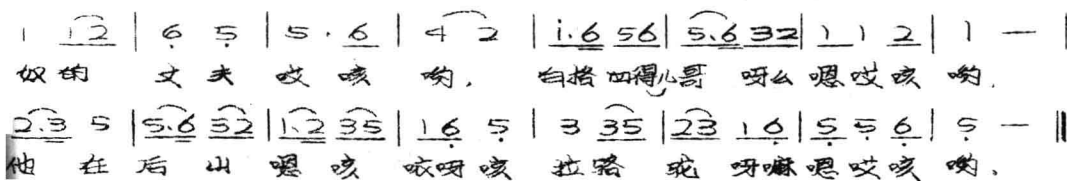 1 12 | 6 5 | 5 · 6 | 4 2 | i.6 56 | 5.6 32 | 1 1 2 | 1 — |
奴的 丈夫 哎咳 哟, 白格凹得儿哥 呀么嗯哎咳 哟.
2.3 5 | 5.6 32 | 1.2 35 | 16 5 | 3 35 | 23 16 | 5 5 6 | 5 — ‖
他在后山 嗯咳 咳呀咳 拉骆驼 呀嘛嗯哎咳 哟.